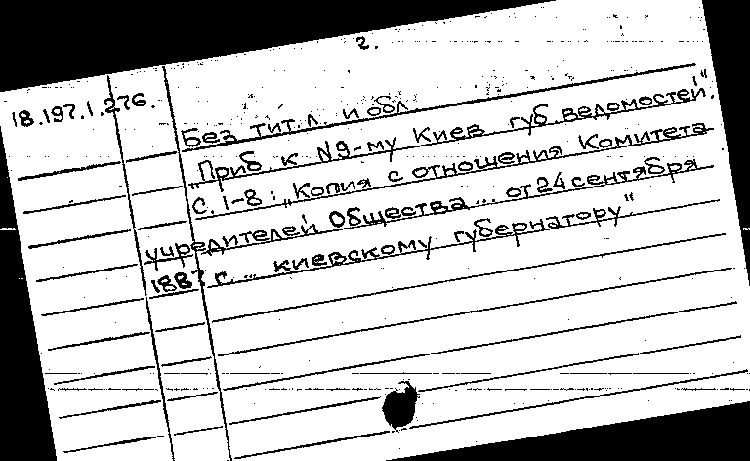 2.
18.197.1.276.
Без тит.л. и обл.
"Приб. к N9-му Киев. губ. ведомостей".
С. 1-8: "Копия с отношения Комитета
учредителей Общества... от 24 сентября
1887 г. ... киевскому губернатору".